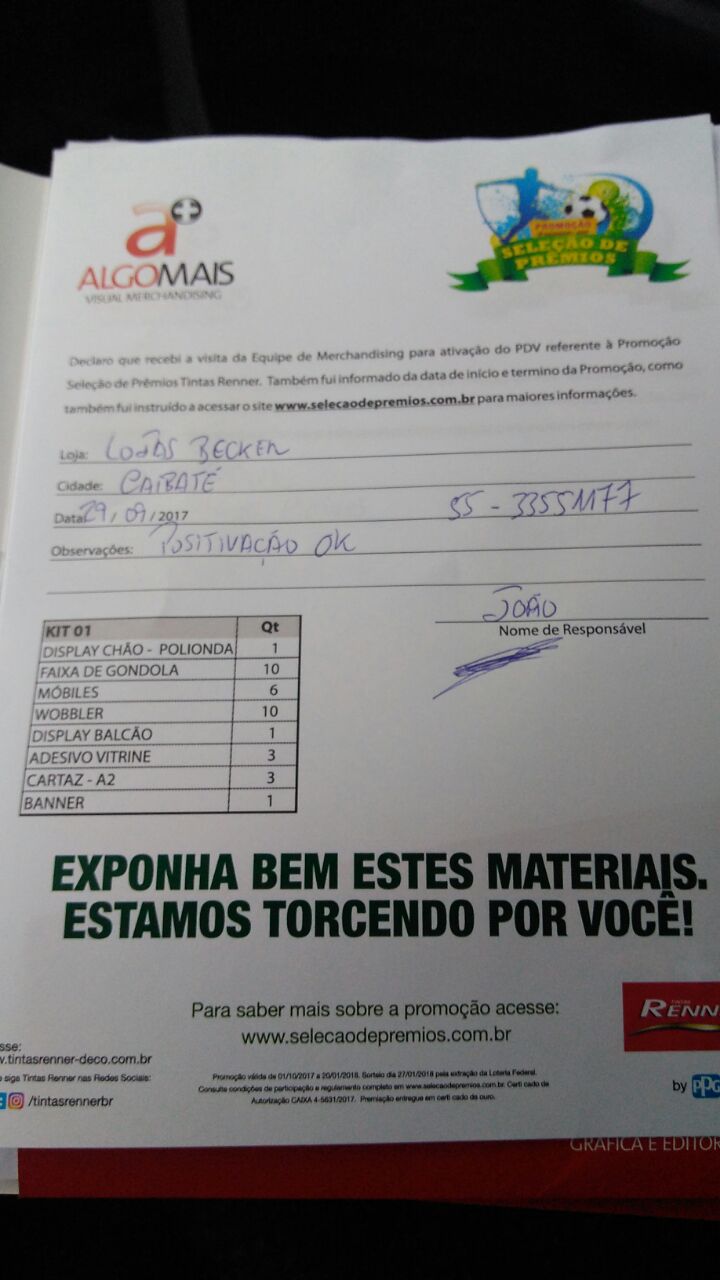 a+
ALGOMAIS
VISUAL MERCHANDISING
PROMOÇÃO
SELEÇÃO DE
PRÊMIOS
Declaro que recebi a visita da Equipe de Merchandising para ativação do PDV referente à Promoção
Seleção de Prêmios Tintas Renner. Também fui informado da data de início e termino da Promoção, como
também fui instruído a acessar o site www.selecaodepremios.com.br para maiores informações.
Loja: LOJAS BECKER
Cidade: CAIBATÉ
Data: 29/09/2017 55-33551177
Observações: POSITIVAÇÃO OK
JOÃO
Nome de Responsável
KIT 01 Qt
DISPLAY CHÃO - POLIONDA 1
FAIXA DE GONDOLA 10
MÓBILES 6
WOBBLER 10
DISPLAY BALCÃO 1
ADESIVO VITRINE 3
CARTAZ - A2 3
BANNER 1
EXPONHA BEM ESTES MATERIAIS.
ESTAMOS TORCENDO POR VOCÊ!
Para saber mais sobre a promoção acesse:
www.selecaodepremios.com.br
TINTAS
RENN
sse:
v.tintasrenner-deco.com.br
e siga Tintas Renner nas Redes Sociais:
/tintasrennerbr
Promoção válida de 01/10/2017 a 20/01/2018. Sorteio dia 27/01/2018 pela extração da Loteria Federal.
Consulte condições de participação e regulamento completo em www.selecaodepremios.com.br. Certi cado de
Autorização CAIXA 4-5631/2017. Premiação entregue em certi cado de ouro.
by PPG
GRÁFICA E EDITOR